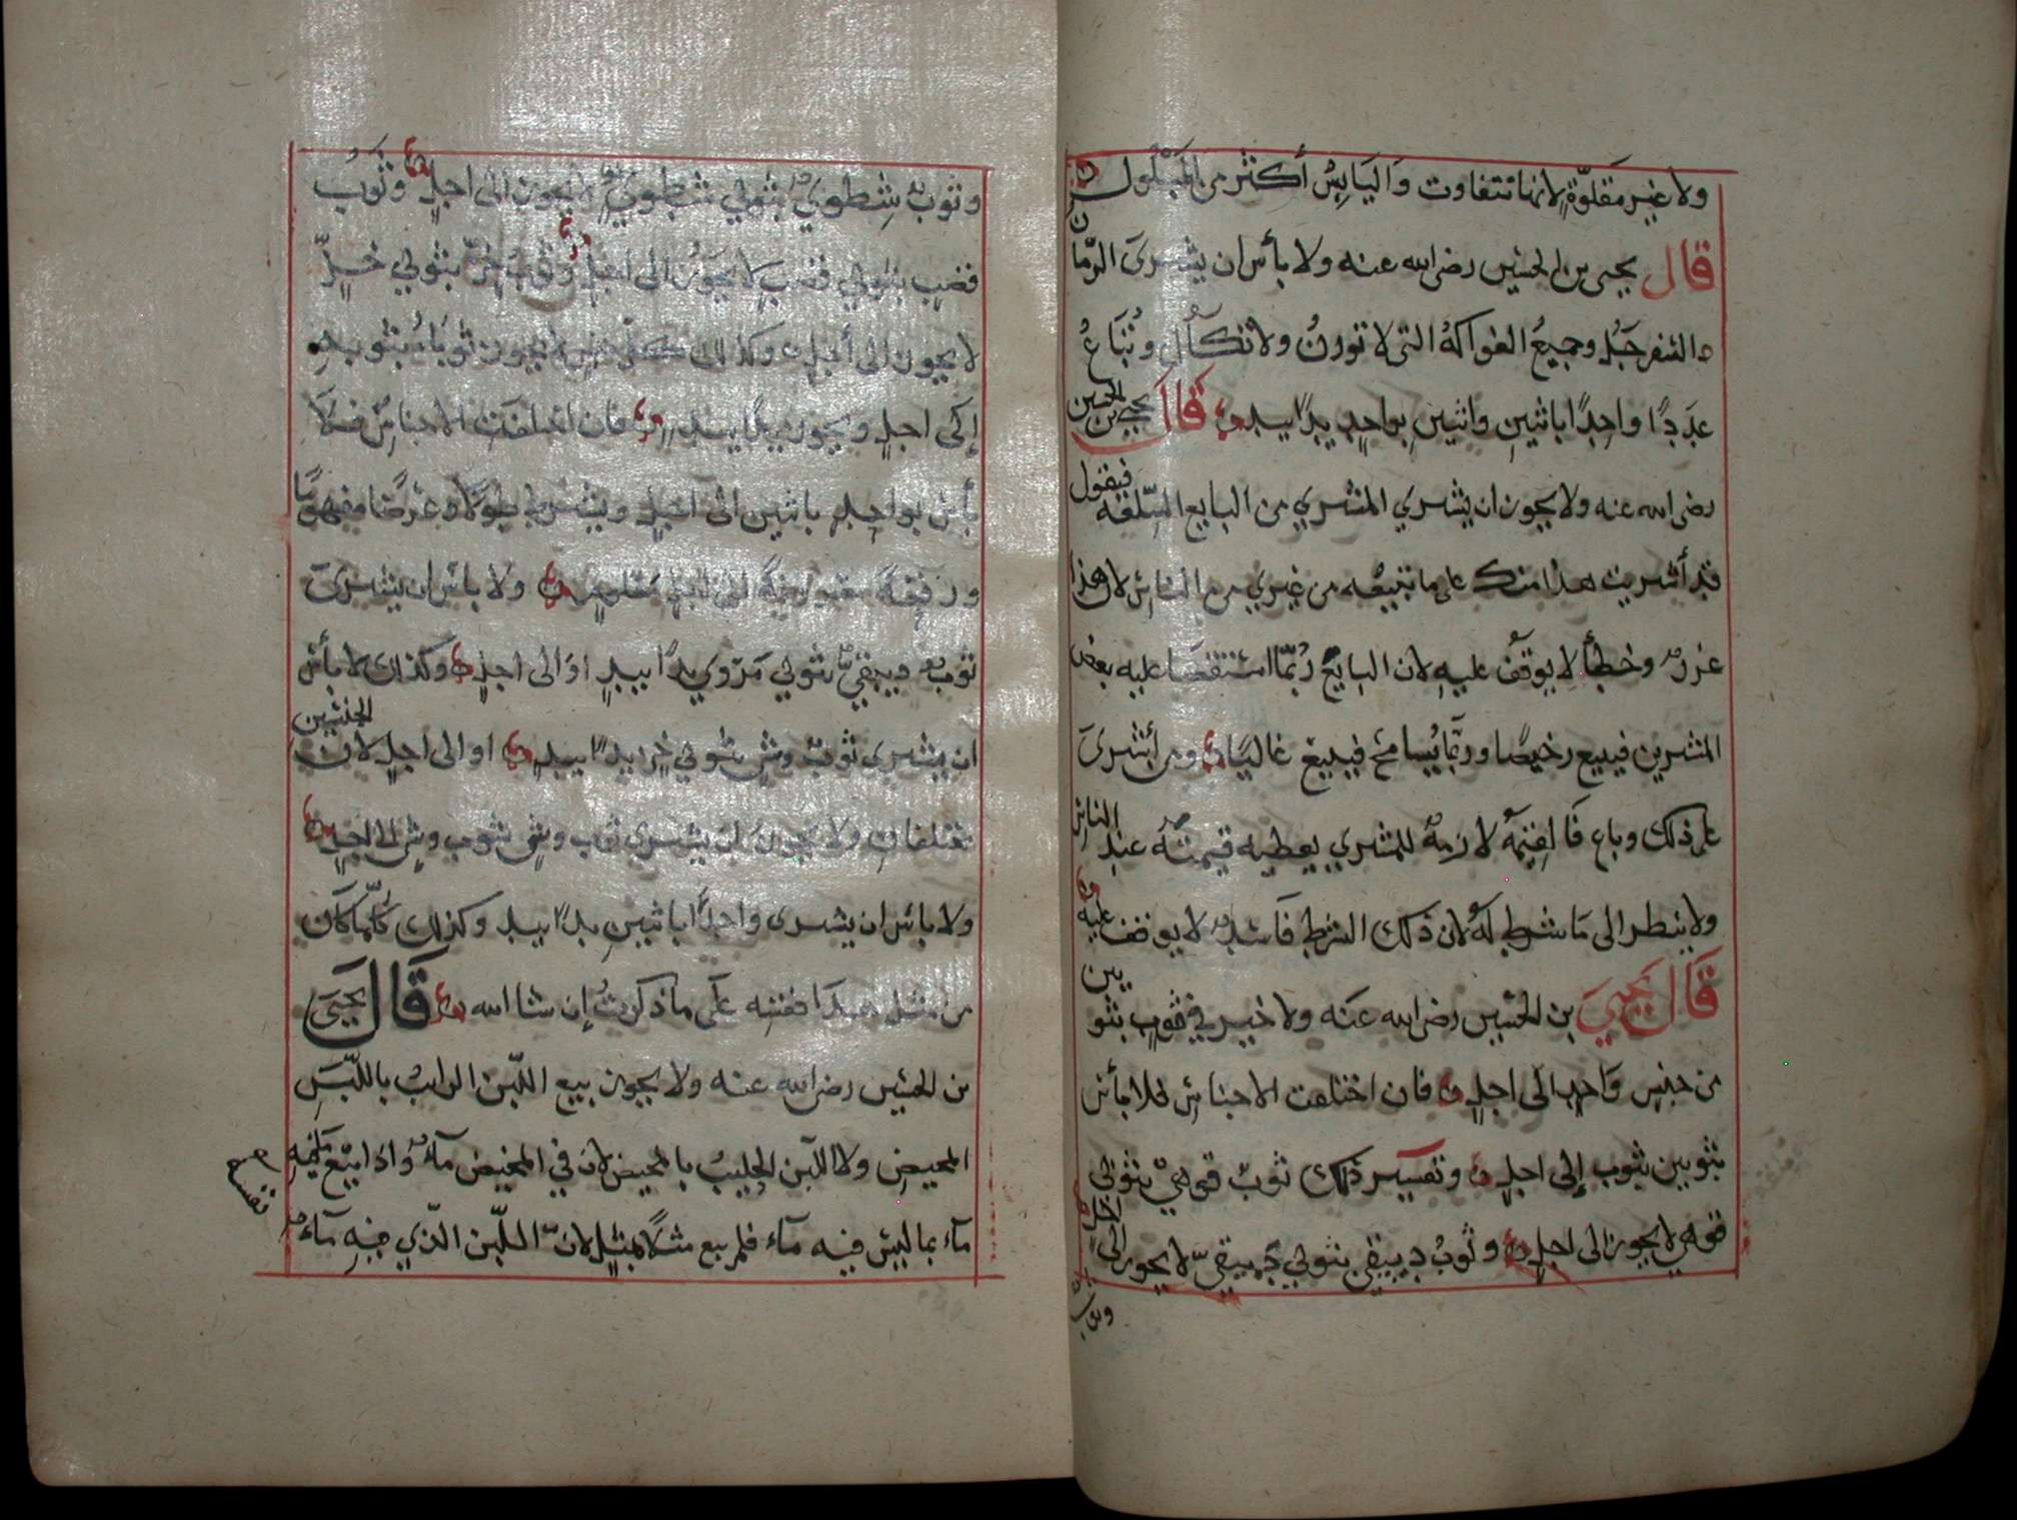 ولا غير مقلوّة لانها تتفاوت وَاليَابِسُ أكثر من المَبْلُول
قال يحيى بن الحسين رضي الله عنه ولا بأس ان يشترىَ الرّمان
والسفرجَل وجميعُ الفواكه التى لا توزنُ ولا تكَالُ وتُبَاعُ
عدَدًا واحِدًا باثنينِ واثنين بواحدٍ يدًا بيد قال يحيى بن الحسين
رضي الله عنه ولا يجوز ان يشتري المشتري من البايع السّلعة فيقول
قد أشتريت هذا منك على ما تبيعُه من غيري من الناسِ لان هذا
غرر وخطأ لا يوقَف عليهِ لان البايعَ رُبّما استقصا عليه بعض
المشترين فيبيع رخيصًا وربّما يُسامحُ فيبيعَ غاليًا ومن أشترىَ
على ذلك وباع فَالقيمَهُ لازمةٌ للمشتري يعطيه قيمتَهُ عند الناس
ولا ينظر الى مَا شرط لَهُ لان ذلك الشرط فَاسدٌ لا يوقف عليه
قال يحيىَ بن الحسين رضي الله عنه ولا خيرَ في ثوبٍ بثوبين
من جنسٍ وَاحدٍ الَى اجلٍ فان اختلفت الاجناسُ فلا بأس
بثوبين بثوب إلى اجلٍ وتفسير ذلك ثوبٌ قوهيٌ بثوبى
قوهي لا يجوز الى اجلٍ وثوبُ دبيقي بثوبي دَبيقيّ لا يجوز الى اجل
وثوب
وثوبٌ شِطَويٌ بثوبي شطوي لا يجوز الى اجلٍ وثَوبُ
قصبٍ بثوبي قصَبٍ لا يجَوزُ الى اجلٍ وثوبُ خزّ بثوبي خزٍّ
لا يجوز الى أجلٍ وكذلك كلّ لا يجوز ثوبَانِ بثوب
إلَى اجلٍ ويجوز يدًا بيدٍ فان اختلفَت الاجناسُ فلا
بأس بواحدٍ باثنين الى اجلٍ ويشترط طولًا وعَرضًا مفهومًا
ورقعةً معروفةً الى اجلٍ معلوم ولا باس ان يشترىَ
ثوبٌ دبيقيّ بثوبي مَرْوي يدًا بيدٍ اوَ الى اجلٍ وكذلك لا بأس
ان يشترى ثوبُ وشي بثوبي خزٍ يدًا بيدٍ او الى اجلٍ لان الجنسين
مختلفان ولا يجوزُ ان يشتري ثوب وشي بثوب وشي الى اجلٍ
ولا باس ان يشترى واحدًا باثنينِ يدًا بيد وكذلك كلّما كان
من مثل هذَا فقسه علَى ما ذكرتُ إن شا الله قَالَ يحيىَ
بن الحسين رضي الله عنه ولا يجوز بيع اللبن الرايبُ باللّبَنِ
المخيضِ ولا اللَبن الحليبُ بالمخيض لان في المخيض مآءٌ وَاذا بيعَ مَا فيه
مآء بما ليس فيه مآء فلم يبع مثلًا بمثلٍ لانّ اللّبن الّذي فيهِ مآءٌ